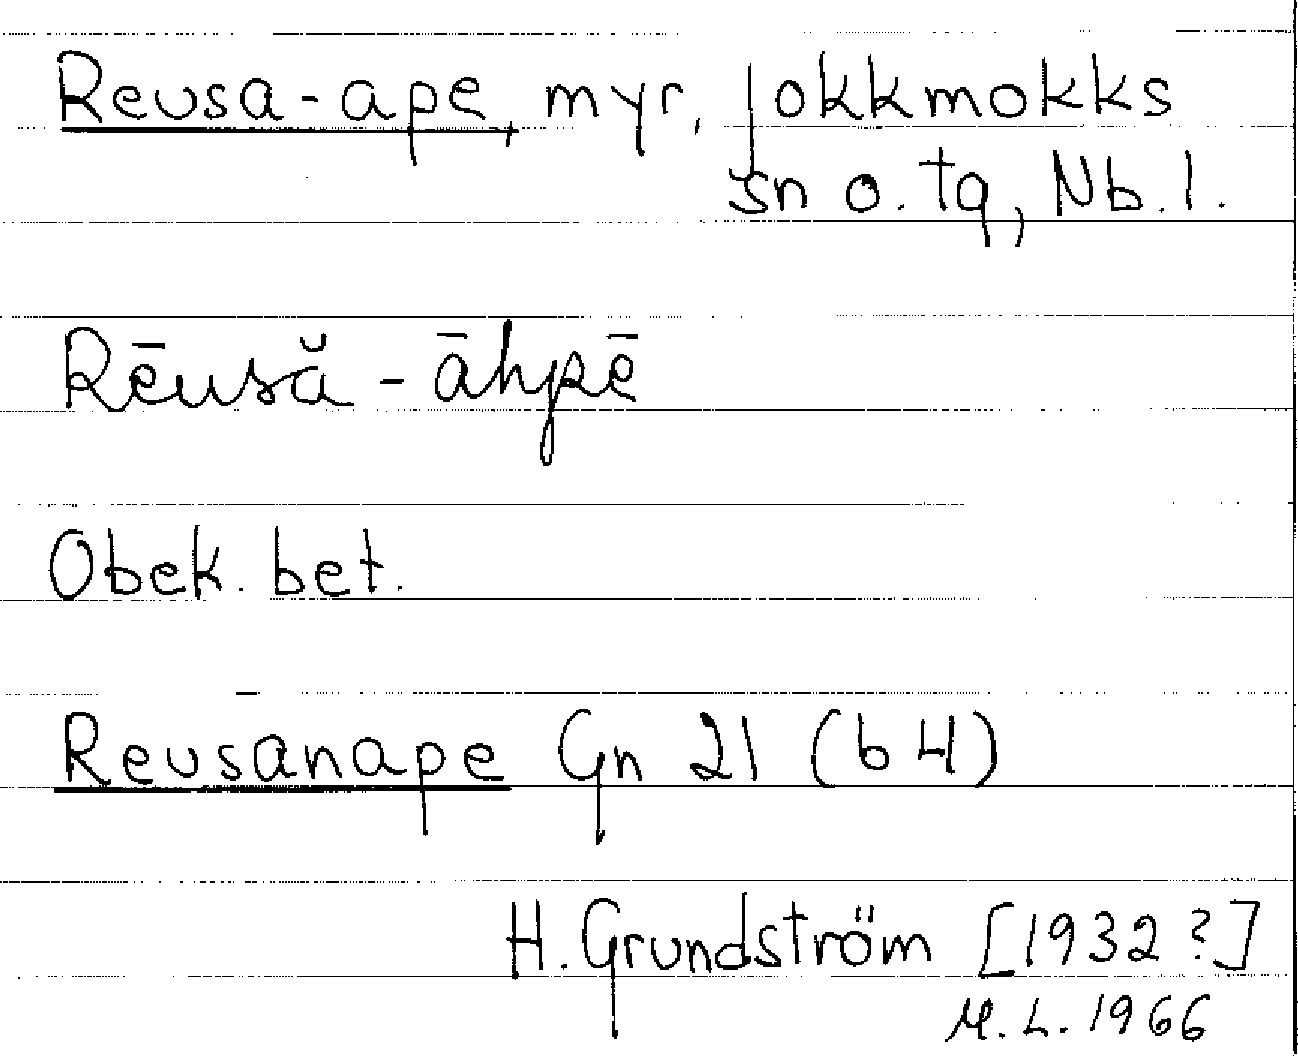 Reusa-ape, myr, Jokkmokks
sn o. tg, Nb. l.
Rēusă - āhpē
Obek. bet.
Reusanape Gn 21 (b 4)
H. Grundström [1932?]
M. L. 1966